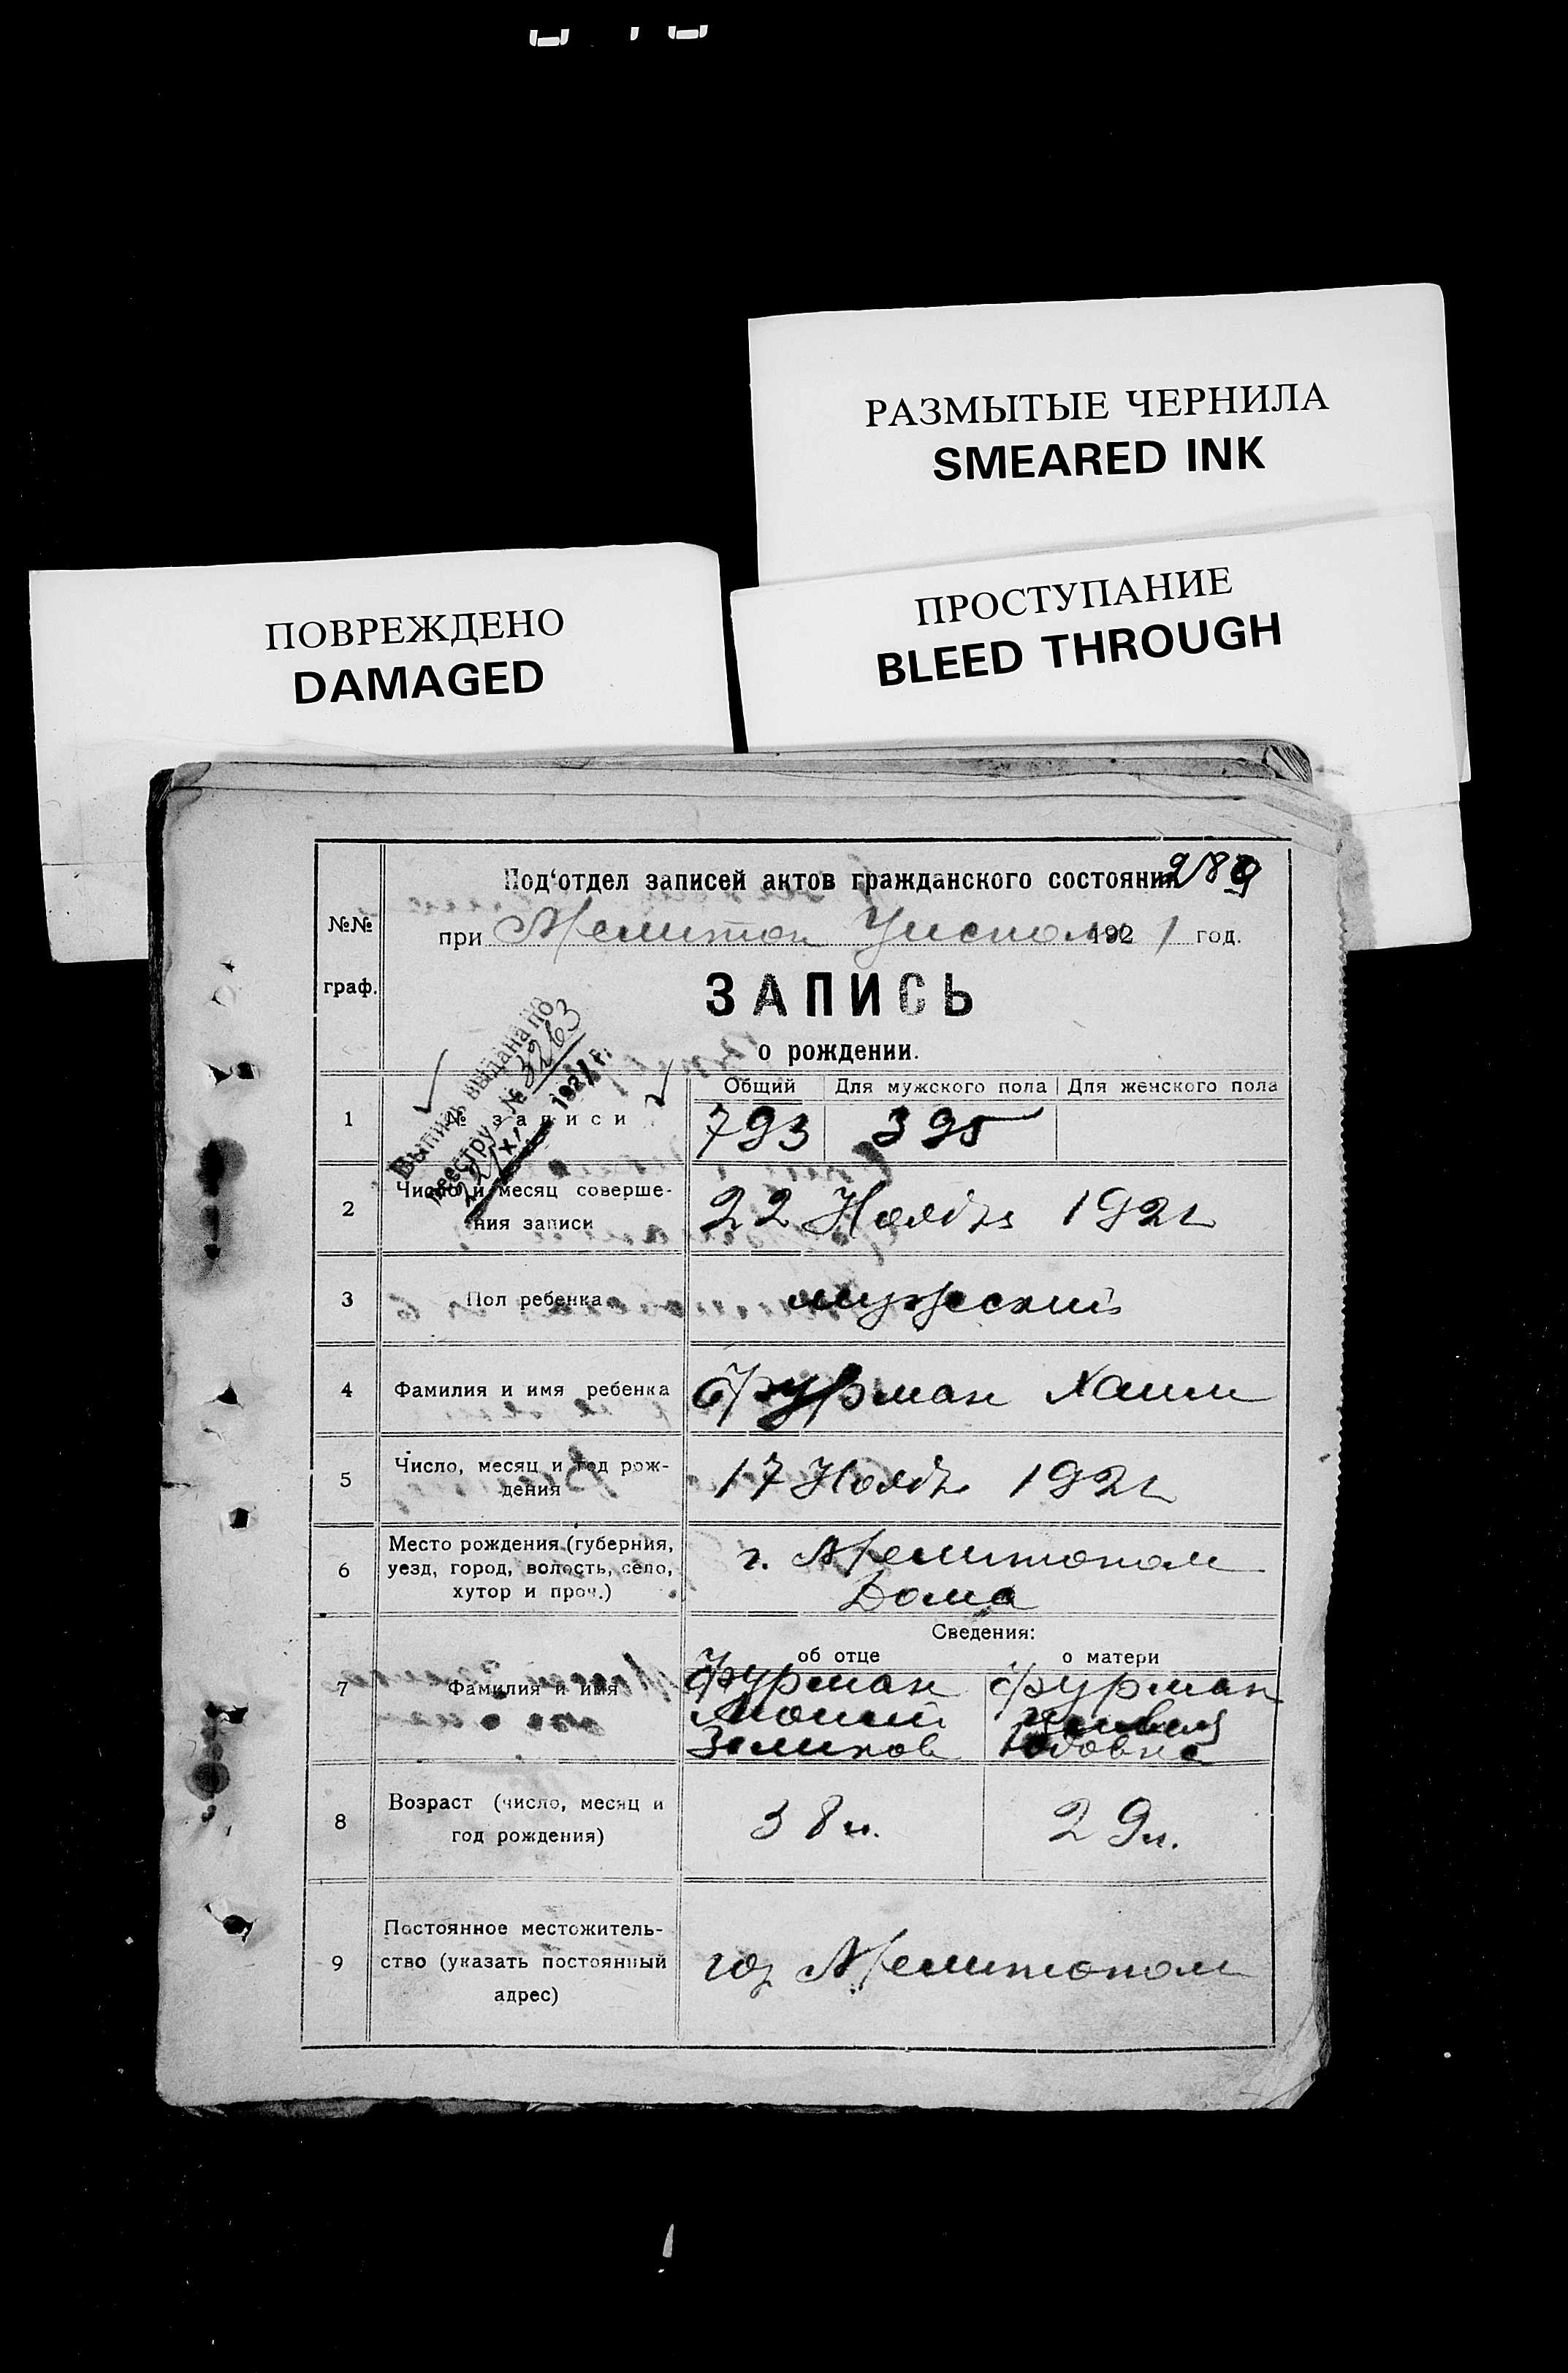 РАЗМЫТЫЕ ЧЕРНИЛА
SMEARED INK
ПРОСТУПАНИЕ
BLEED THROUGH
ПОВРЕЖДЕНО
DAMAGED
Под‘отдел записей актов гражданского состояния
№№
граф.
при Мелитоп 1921 год.
ЗАПИСЬ
о рождении.
Выпись выдана по
реестру № 3263
1921 г.
Общий Для мужского пола Для женского пола
1 № записи 793 395
2 Число и месяц соверше-
ния записи
22 Ноября 1921
3 Пол ребенка мужеский
4 Фамилия и имя ребенка Фурман Хаим
5 Число, месяц и год рож-
дения
17 Нояб 1921
6 Место рождения (губерния,
уезд, город, волость, село,
хутор и проч.)
г. Мелитополь
Дома
Сведения:
об отце о матери
7 Фамилия и имя
Фурман Фурман
Зеликов Юдовна
8 Возраст (число, месяц и
год рождения)
38 л. 29 л.
9 Постоянное местожитель-
ство (указать постоянный
адрес)
гор Мелитополь